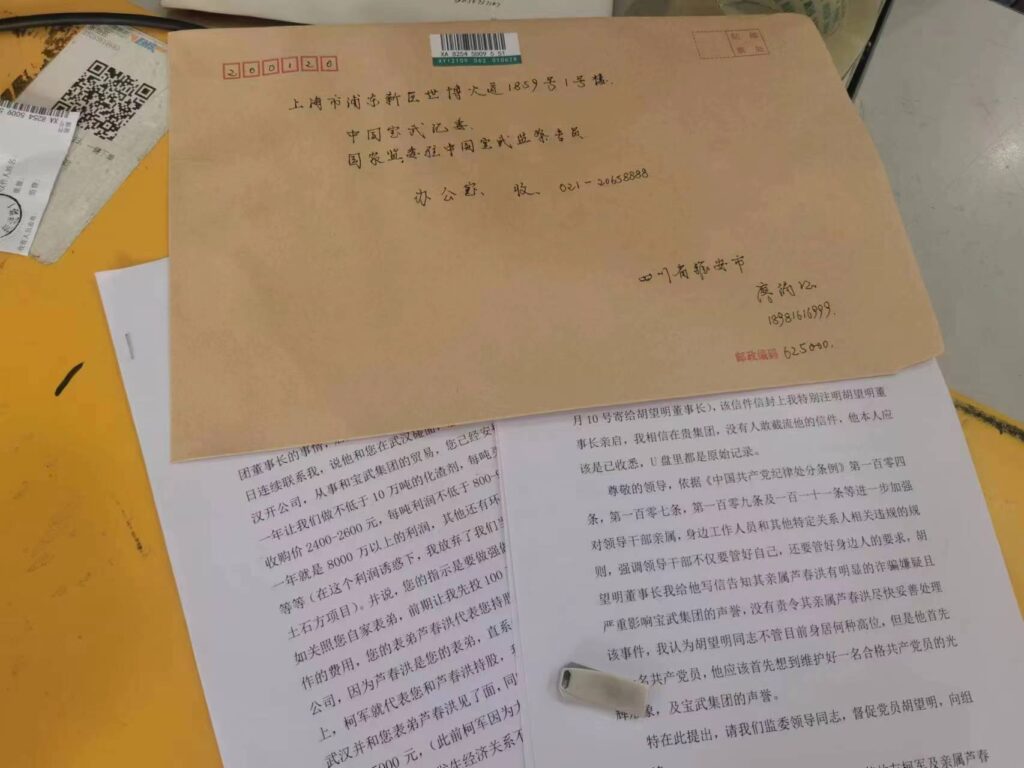 XA 8254 5009 5 51
200120
上海市浦东新区世博大道1859号1号楼.
中国宝武纪委.
国家监委驻中国宝武监察专员
办公室、收、021-20658888
四川省雅安市
廖
18981616999.
邮政编码 625000.
团董事长的事情,
日连续联系我,说他和您在武汉碰面,您已经安
汉开公司,从事和宝武集团的贸易,您
一年让我们做不低于10万吨的化渣剂,每吨
收购价2400-2600元,每吨利润不低于800
一年就是8000万以上的利润,其他还有环
等等(在这个利润诱惑下,我放弃了我们
土石方项目)。并说,您的指示是要做强
如关照您自家表弟,前期让我先投100
作的费用,您的表弟芦春洪代表您持股
公司,因为芦春洪是您的表弟,直系
上,柯军就代表您和芦春洪持股,
武汉并和您表弟芦春洪见了面,同
5000元,(此前柯军因为
发生经济关系不
月10号寄给胡望明董事长),该信件信封上我特别注明胡望明董
事长亲启,我相信在贵集团,没有人敢截流他的信件,他本人应
该是已收悉,U盘里都是原始记录。
尊敬的领导,依据《中国共产党纪律处分条例》第一百零四
条,第一百零七条,第一百零九条及一百一十一条等进一步加强
对领导干部亲属,身边工作人员和其他特定关系人相关违规的规
则,强调领导干部不仅要管好自己,还要管好身边人的要素,胡
望明董事长我给他写信告知其亲属芦春洪有明显的诈骗嫌疑且
严重影响宝武集团的声誉,没有责令其亲属芦春洪尽快妥善处理
该事件,我认为胡望明同志不管目前身居何种高位,但是他首先
名共产党员,他应该首先想到维护好一名合格共产党员的光
辉形象,及宝武集团的声誉。
特在此提出,请我们监委领导同志,督促党员胡望明,向组
柯军及亲属芦春